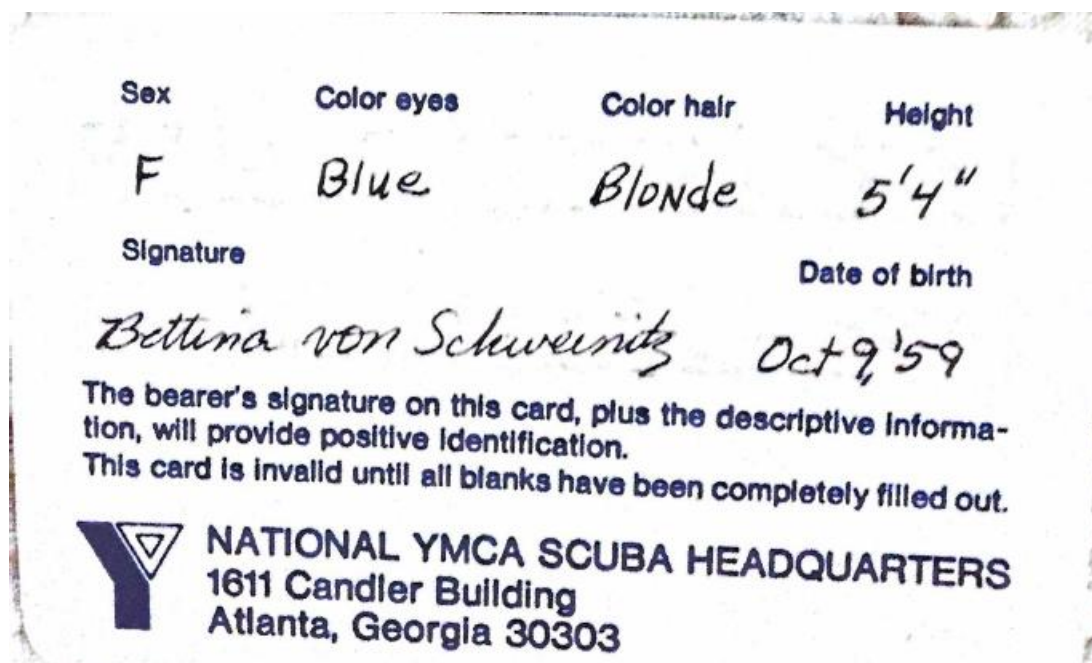 Sex Color eyes Color hair Height
F Blue Blonde 5'4"
Signature Date of birth
Bettina von Schweinitz Oct 9, '59
The bearer's signature on this card, plus the descriptive informa-
tion, will provide positive identification.
This card is invalid until all blanks have been completely filled out.
NATIONAL YMCA SCUBA HEADQUARTERS
1611 Candler Building
Atlanta, Georgia 30303